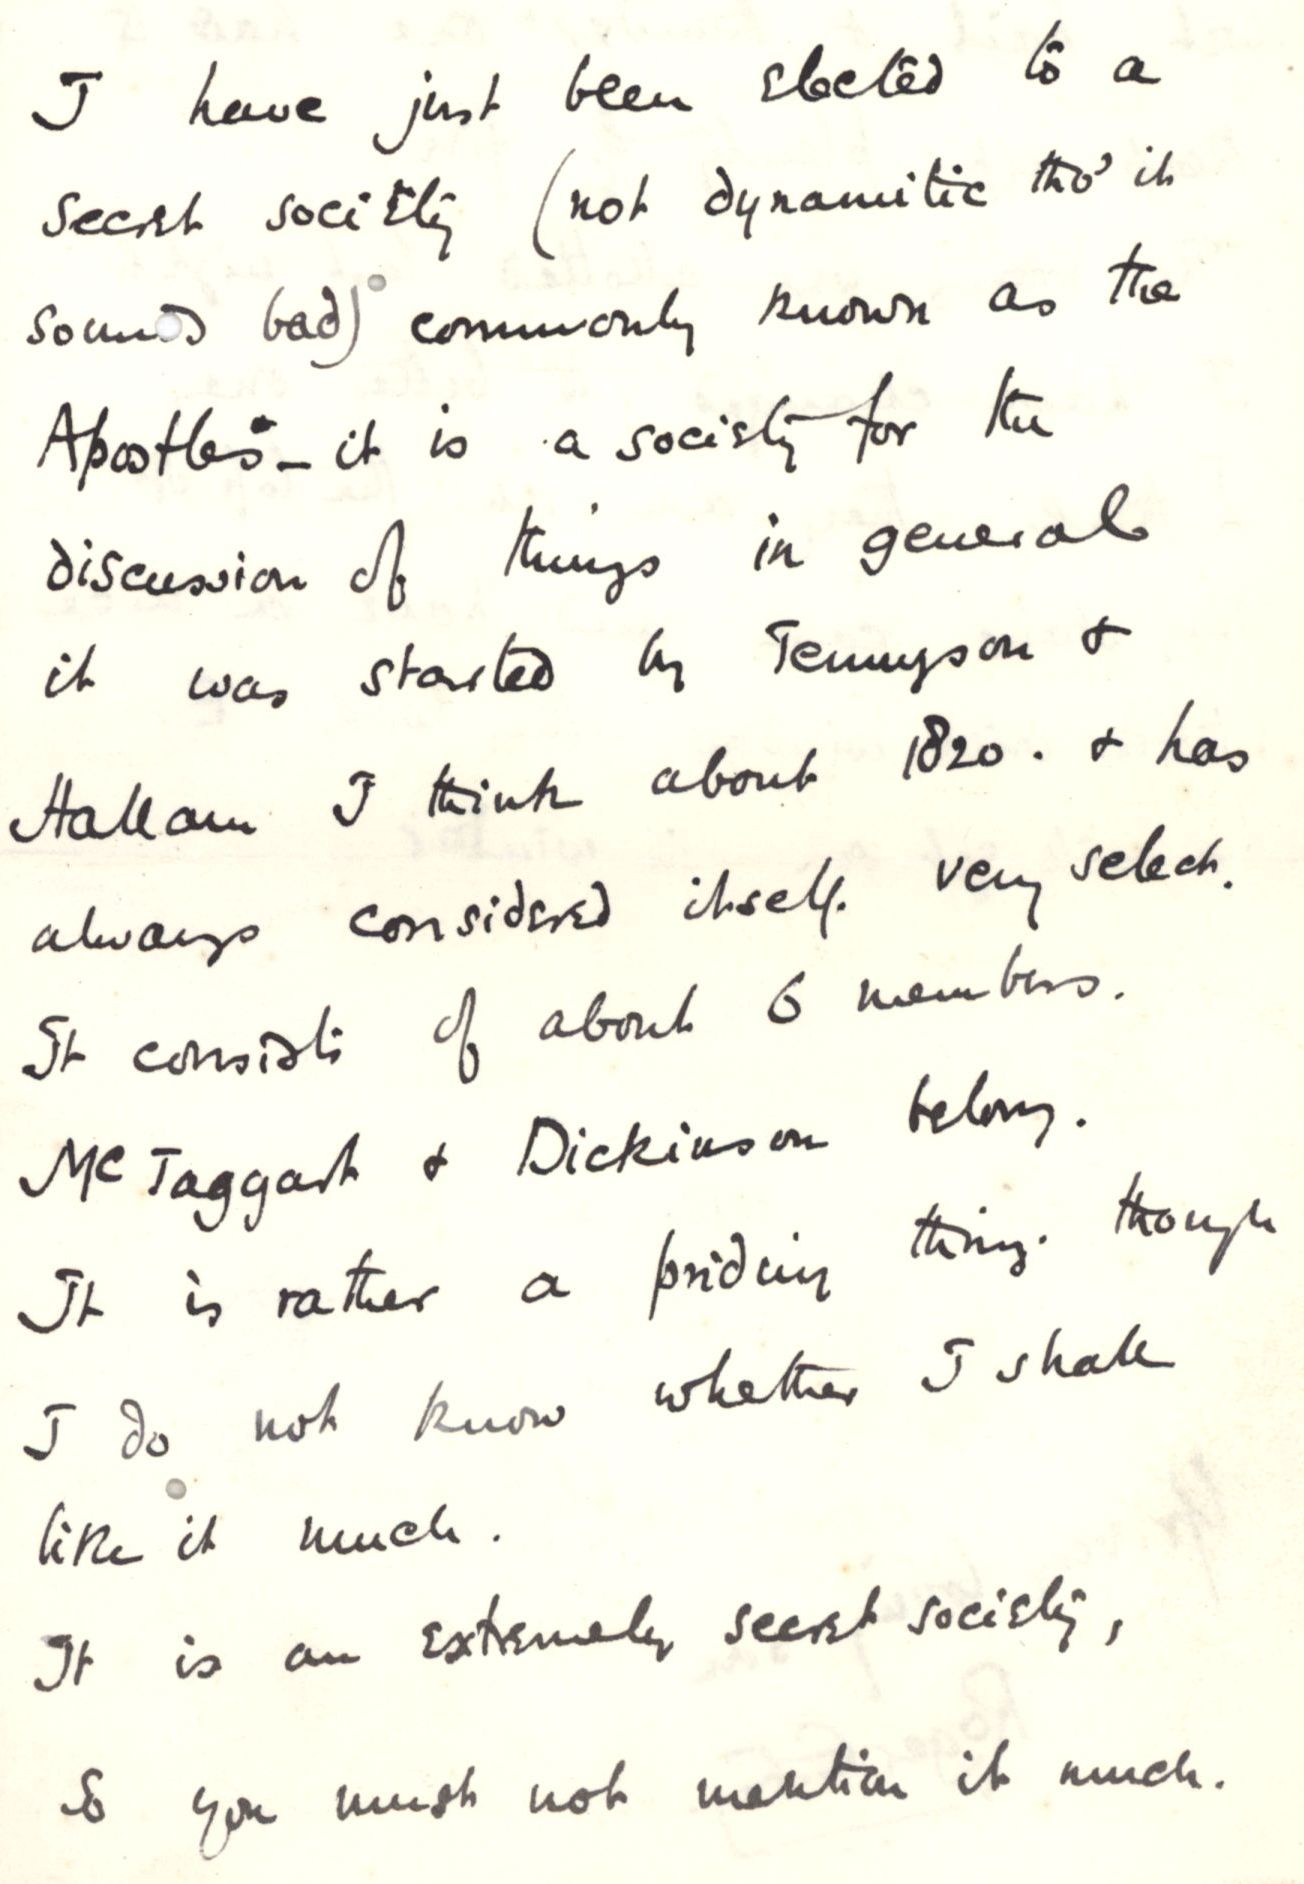 I have just been elected to a
secret society (not dynamitic tho' it
sounds bad) commonly known as the
Apostles - it is a society for the
discussion of things in general
it was started by Tennyson &
Hallam I think about 1820. & has
always considered itself very select.
It consists of about 6 members.
McTaggart & Dickinson belong.
It is rather a priding thing. though
I do not know whether I shall
like it much.
It is an extremely secret society,
So you must not mention it much.